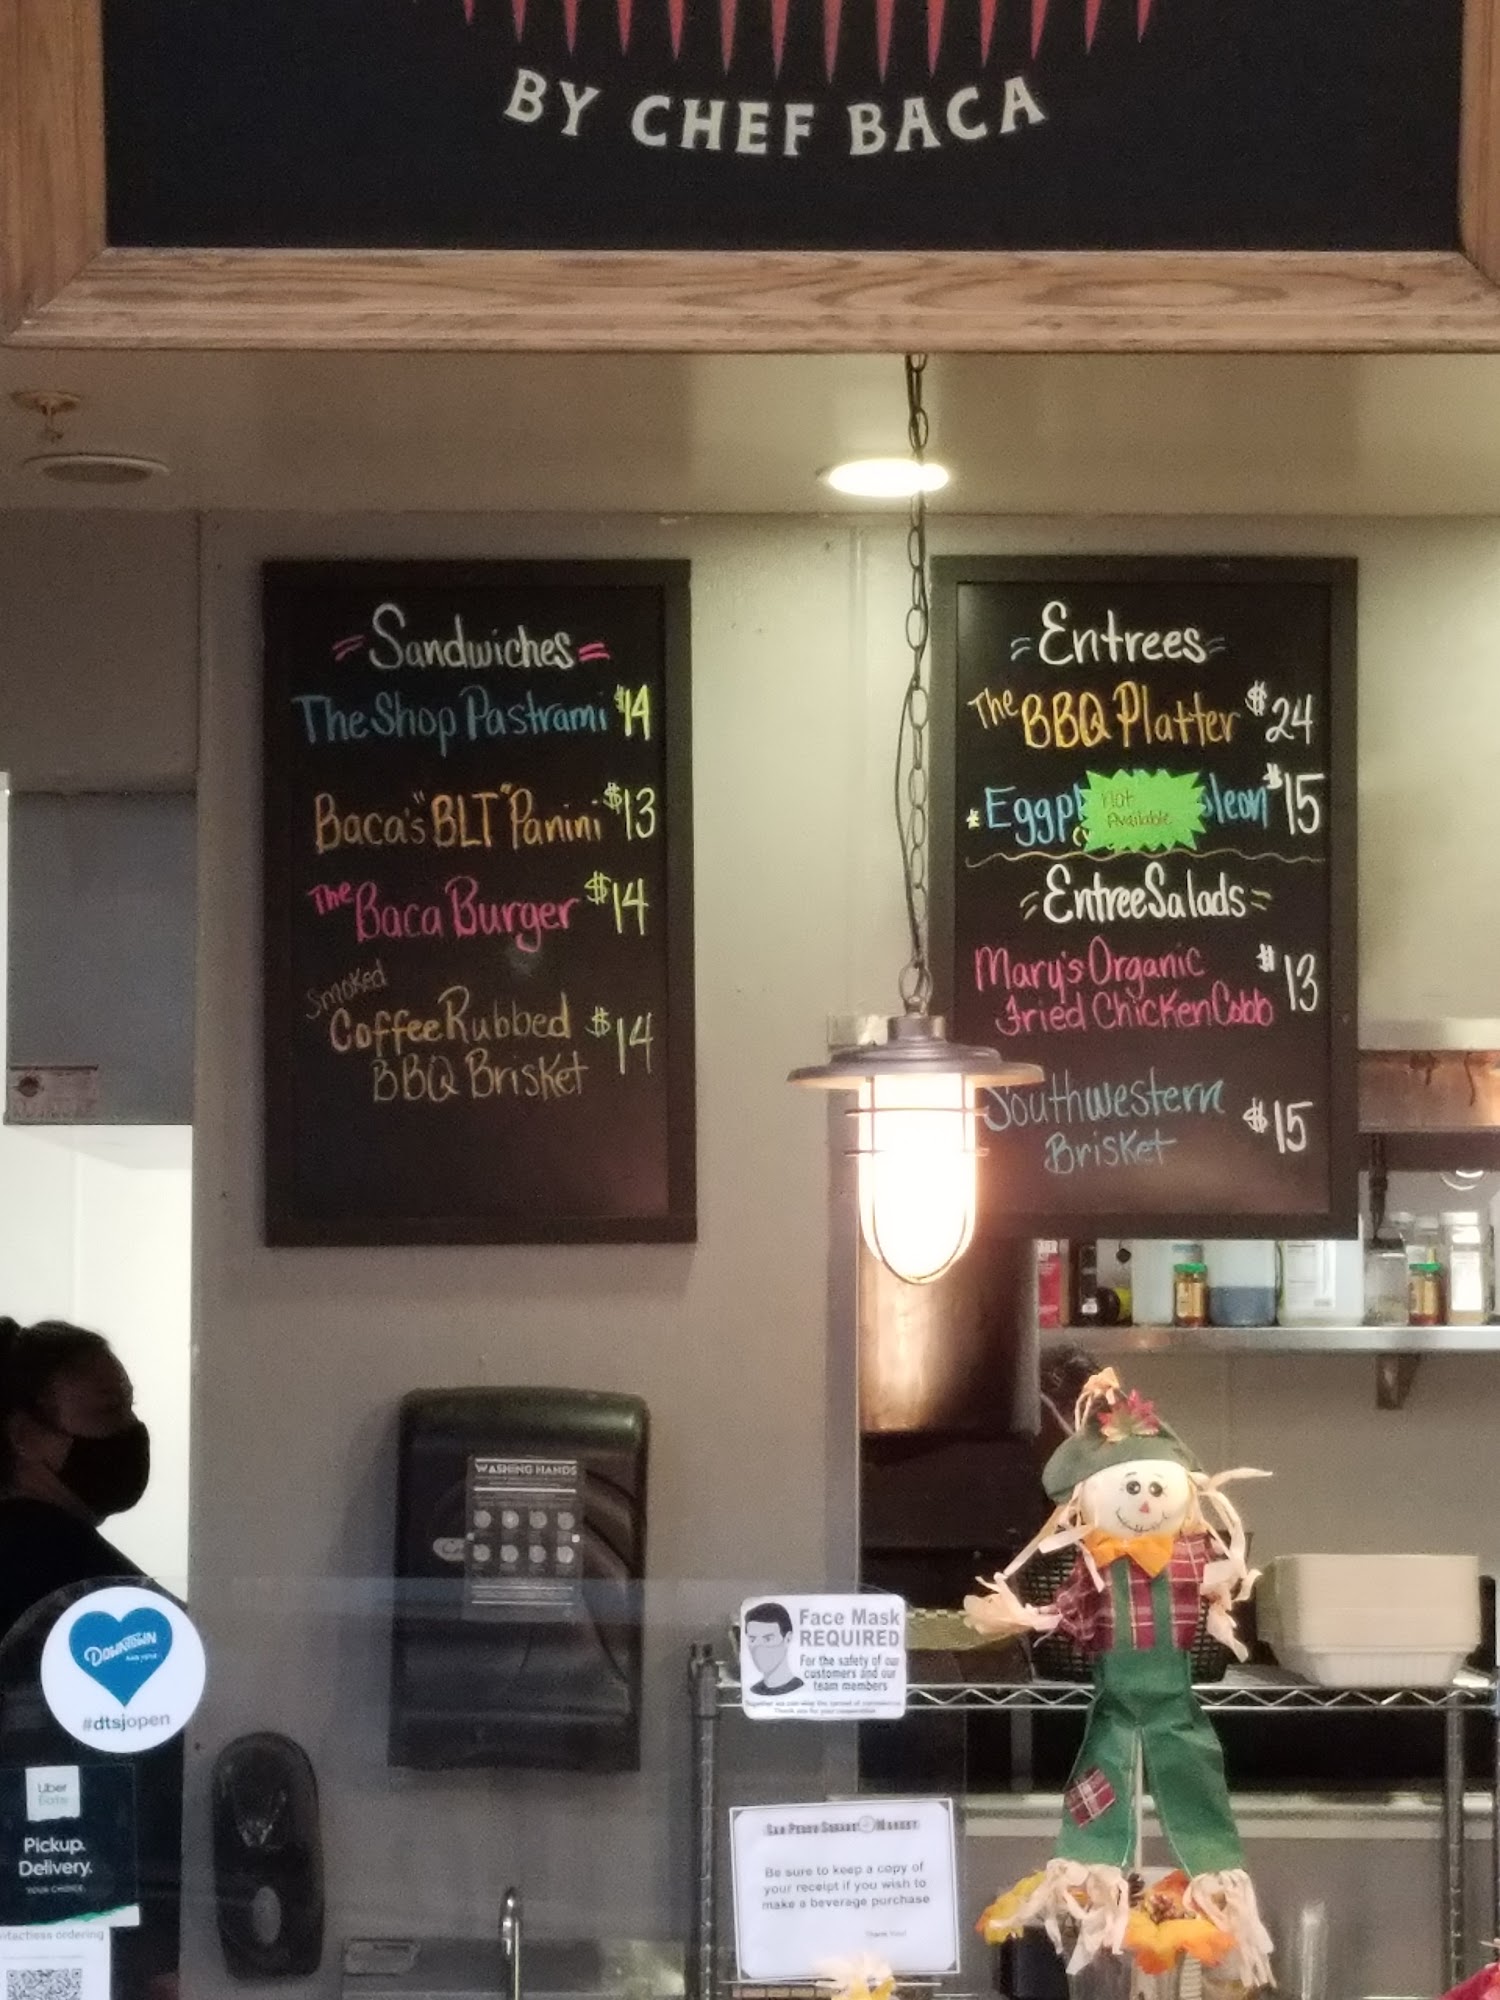 BY CHEF BACA
Sandwiches
The Shop Pastrami $14
Baca's "BLT" Panini $13
The Baca Burger $14
Smoked
Coffee Rubbed $14
BBQ Brisket
Entrees
The BBQ Platter $24
Eggpl leon $15
Not
Available
Entree Salads
Mary's Organic $13
Fried Chicken Cobb
Southwestern $15
Brisket
WASHING HANDS
Face Mask
REQUIRED
For the safety of our
customers and our
team members
DOWNTOWN
SAN JOSE
#dtsjopen
Uber
Eats
Pickup.
Delivery.
YOUR CHOICE.
ntactless ordering
SAN PEDRO SQUARE MARKET
Be sure to keep a copy of
your receipt if you wish to
make a beverage purchase
Thank You!